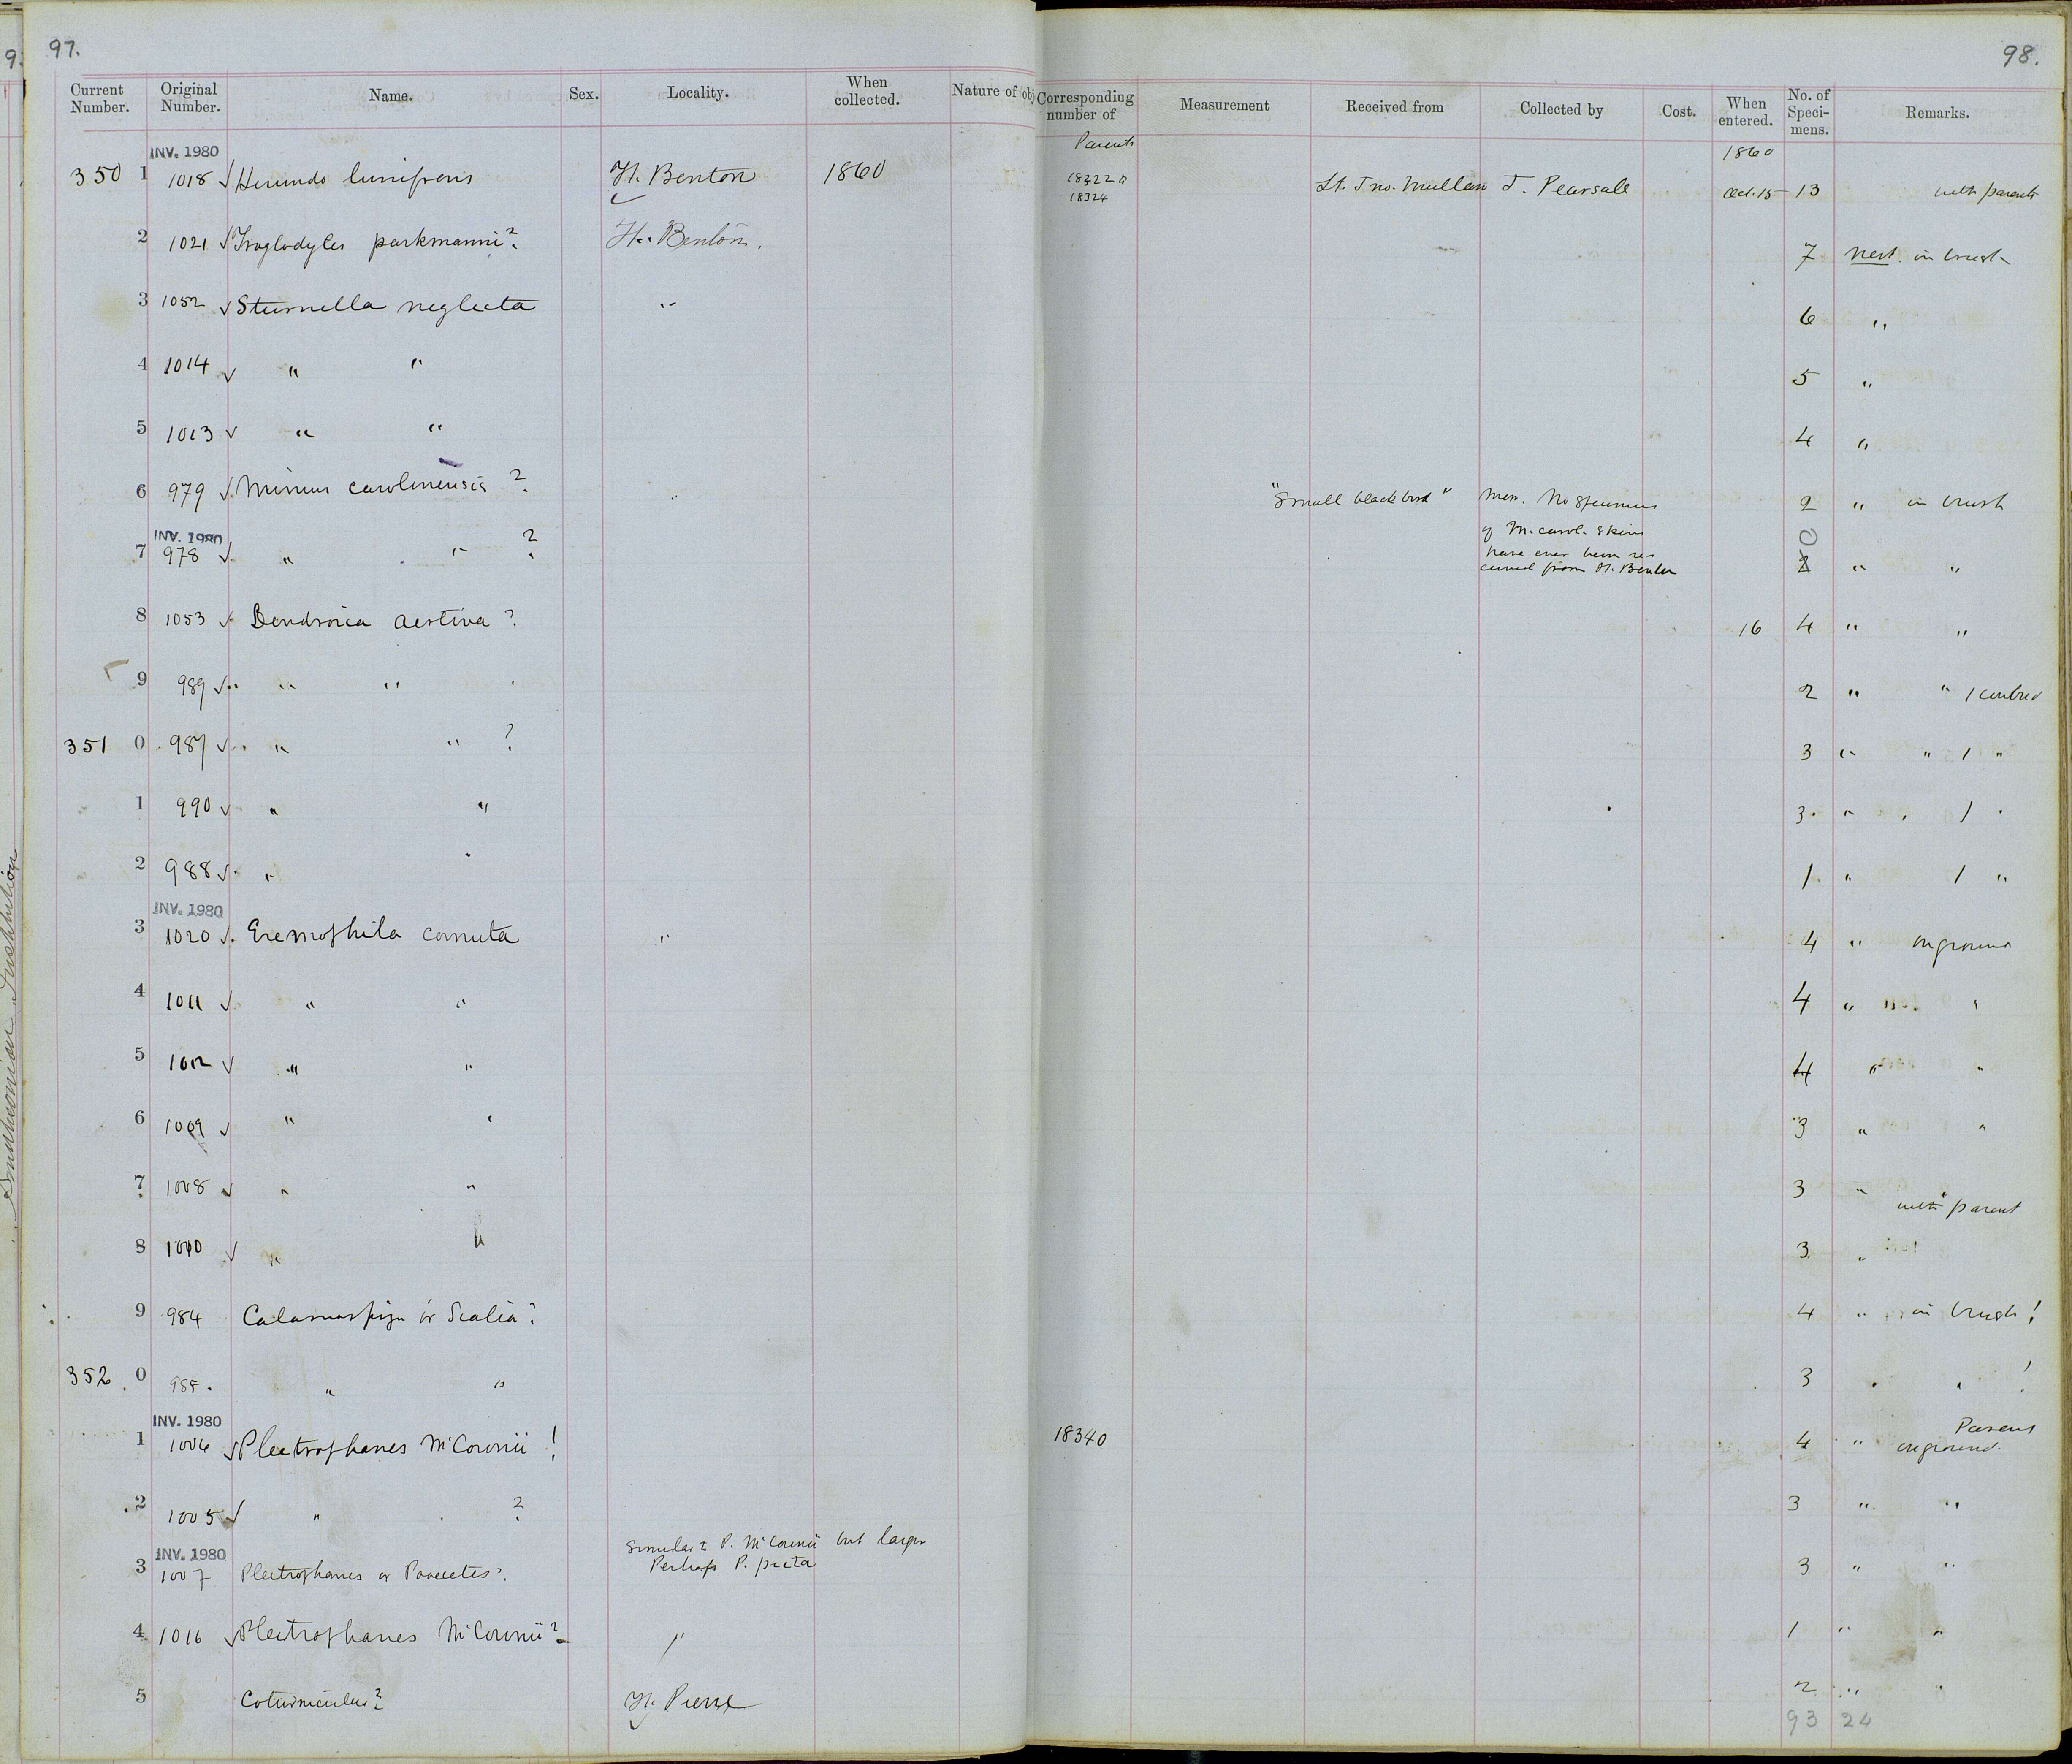 97.
98.
Current Number. Original Number. Name. Sex. Locality. When collected. Nature of obj Corresponding number of Measurement Received from Collected by Cost. When entered. No. of Speci- mens. Remarks.
INV. 1980 Parents 1860
350 1 1018 √ Hirundo lunifrons Ft. Benton 1860 18322 18324 Lt. Jno. Mullan J. Pearsall Oct. 15 13 with parents
2 1021 √ Troglodytes parkmanni? Ft. Benton. 7 nest. in brush
3 1052 √ Sturnella neglecta " 6 "
4 1014 √ " " 5 "
5 1013 √ " " 4 "
6 979 √ Mimus carolinensis ? "Small black bird" Mem. No specimens 2 " in brush
of M. carol. skins
INV. 1980
7 978 √ " " ? have ever been re-
ceived from Ft. Benton " "
8 1053 √ Dendroica aestiva ? 16 4 " "
9 989 √ " " 2 " "
351 0 987 √ " " ? 3 " " 1 "
1 990 √ " " 3 " " 1 "
2 988 √ " " 1 " 1 "
INV. 1980
3 1020 √ Eremophila cornuta " 4 " on ground
4 1011 √ " " 4 " "
5 1012 √ " " 4 " "
6 1009 √ " " 3 " "
7 1008 √ " " 3 " "
with parent
8 1010 √ " " 3 "
9 984 Calamospiza or Sialia? 4 " in brush!
352 0 985 " " 3 " " !
INV. 1980 Parent
1 1006 √ Plectrophanes McCownii ! 18340 4 " on ground.
2 1005 √ " " ? 3 " "
Similar to P. McCownii but larger
INV. 1980 Perhaps P. picta
3 1007 Plectrophanes or Pooecetes? 3 " "
4 1016 √ Plectrophanes McCownii? " 1 " "
5 Coturniculus? Ft. Pierre 2 " "
93 24
Smithsonian Institution